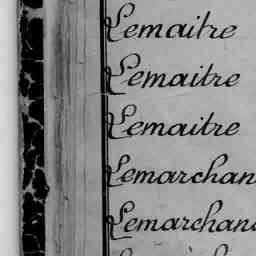 Lemaitre
Lemaitre
Lemaitre
Lemarchan
Lemarchand